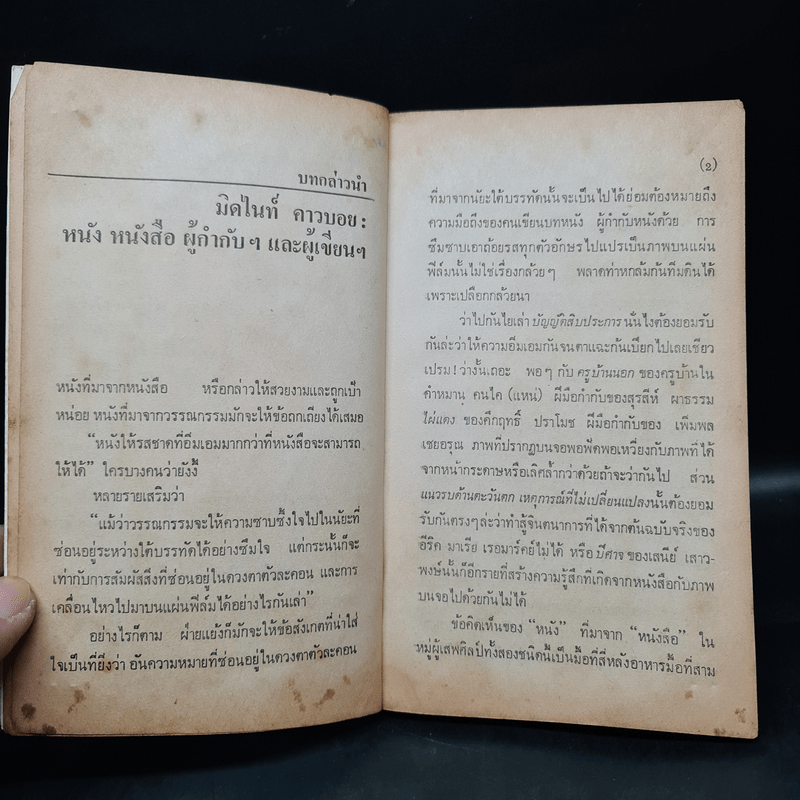 บทกล่าวนำ
มิดไนท์ คาวบอย :
หนัง หนังสือ ผู้กำกับๆ และผู้เขียนๆ
หนังที่มาจากหนังสือ หรือกล่าวให้สวยงามและถูกเป้า
หน่อย หนังที่มาจากวรรณกรรมมักจะให้ข้อถกเถียงได้เสมอ
“หนังให้รสชาดที่อิ่มเอมมากกว่าที่หนังสือจะสามารถ
ให้ได้” ใครบางคนว่ายังงี้
หลายรายเสริมว่า
“แม้ว่าวรรณกรรมจะให้ความซาบซึ้งใจไปในนัยะที่
ซ่อนอยู่ระหว่างใต้บรรทัดได้อย่างซึมใจ แต่กระนั้นก็จะ
เท่ากับการสัมผัสสิ่งที่ซ่อนอยู่ในดวงตาตัวละคอน และการ
เคลื่อนไหวไปมาบนแผ่นฟิล์มได้อย่างไรกันเล่า”
อย่างไรก็ตาม ฝ่ายแย้งก็มักจะให้ข้อสังเกตที่น่าใส่
ใจเป็นที่ยิ่งว่า อันความหมายที่ซ่อนอยู่ในดวงตาตัวละคอน
(2)
ที่มาจากนัยะใต้บรรทัดนั้นจะเป็นไปได้ย่อมต้องหมายถึง
ความมือถึงของคนเขียนบทหนัง ผู้กำกับหนังด้วย การ
ซึมซาบเอาถ้อยรสทุกตัวอักษรไปแปรเป็นภาพบนแผ่น
ฟิล์มนั้นไม่ใช่เรื่องกล้วยๆ พลาดท่าหกล้มก้นทิ่มดินได้
เพราะเปลือกกล้วยนา
ว่าไปกันไยเล่า บัญญัติสิบประการ นั่นไงต้องยอมรับ
กันล่ะว่าให้ความอิ่มเอมกันจนตาแฉะก้นเปียกไปเลยเชียว
เปรม! ว่างั้นเถอะ พอๆ กับ ครูบ้านนอก ของครูบ้านใน
คำหมาน คนไค (แหน่) ฝีมือกำกับของสุรสีห์ ผาธรรม
ไผ่แดง ของคึกฤทธิ์ ปราโมช ฝีมือกำกับของ เพิ่มพล
เชยอรุณ ภาพที่ปรากฏบนจอพอฟัดพอเหวี่ยงกับภาพที่ได้
จากหน้ากระดาษหรือเลิศล้ำกว่าด้วยถ้าจะว่ากันไป ส่วน
แนวรบด้านตะวันตก เหตุการณ์ที่ไม่เปลี่ยนแปลงนั้นต้องยอม
รับกันตรงๆล่ะว่าทำสู้จินตนาการที่ได้จากต้นฉบับจริงของ
อีริค มาเรีย เรอมาร์คย์ไม่ได้ หรือ ปีศาจ ของเสนีย์ เสาว-
พงษ์นั้นก็อีกรายที่สร้างความรู้สึกที่เกิดจากหนังสือกับภาพ
บนจอไปด้วยกันไม่ได้
ข้อคิดเห็นของ “หนัง” ที่มาจาก “หนังสือ” ใน
หมู่ผู้เสพศิลป์ทั้งสองชนิดนี้เป็นมื้อที่สี่หลังอาหารมื้อที่สาม